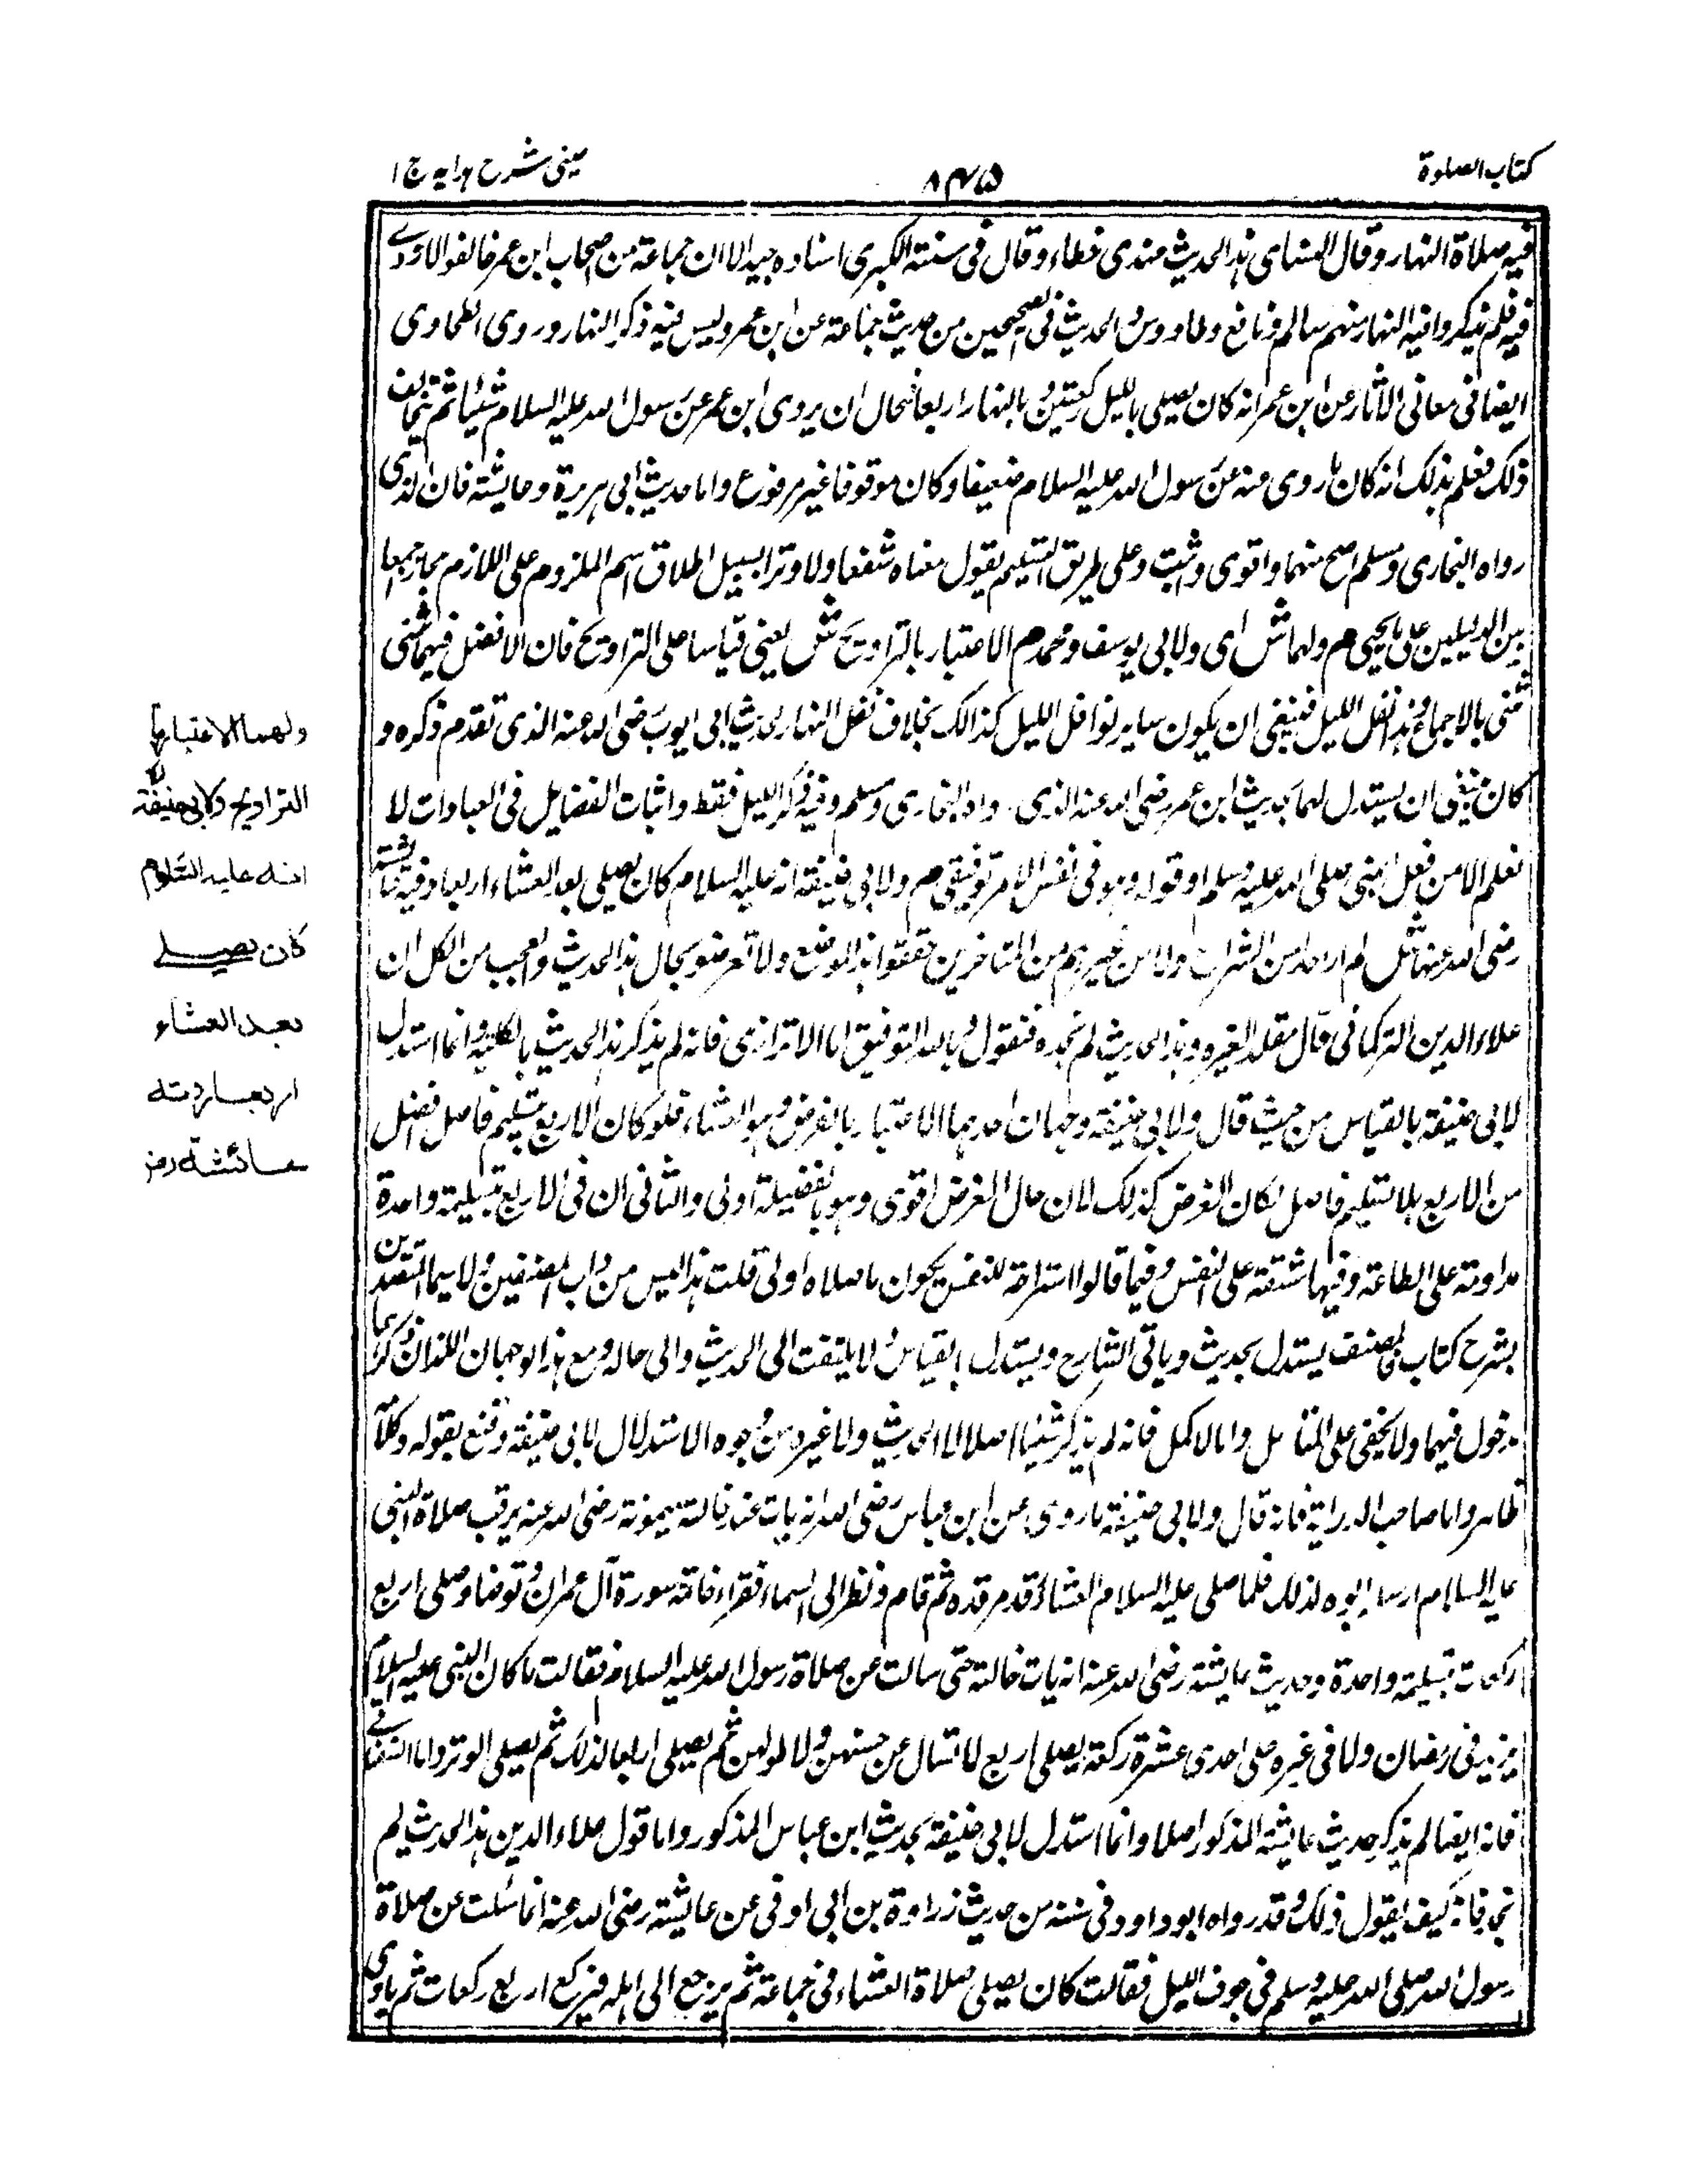 كتاب الصلوة
٨٤٥
عينى شرح هدايه ج ١
فيه صلاة النهار وقال النسائى هذا الحديث عندى خطاء وقال فى سننه الكبرى اسناده جيد الا ان جماعة من اصحاب ابن عمر خالفوا الازدى
فيه فلم يذكروا فيه النهار منهم سالم ونافع وطاووس والحديث فى الصحيحين من حديث جماعة عن ابن عمر وليس فيه ذكر النهار وروى الطحاوى
ايضا فى معانى الاثار عن ابن عمر انه كان يصلى بالليل ركعتين وبالنهار اربعا فمحال ان يروى ابن عمر عن رسول الله عليه السلام شيئا ثم يخالف
ذلك فعلم بذلك انه كان ما روى عنه عن رسول الله عليه السلام ضعيفا وكان موقوفا غير مرفوع واما حديث ابى هريرة وعايشة فان الذى
رواه البخارى ومسلم اصح منهما واقوى واثبت وعلى طريق التسليم يقول معناه شفعا ولا وترا بسبيل اطلاق اسم الملزوم على اللازم مجازا جمعا
بين الدليلين على ما يجيئ م ولهما ش اى ولابى يوسف ومحمد م الاعتبار بالتراويح ش يعنى قياسا على التراويح فان الافضل فيها مثنى
مثنى بالاجماع وهذا نفل الليل فينبغى ان يكون ساير نوافل الليل كذالك بخلاف نفل النهار لحديث ابى ايوب رضى الله عنه الذى تقدم ذكره و
كان ينبغى ان يستدل لهما بحديث ابن عمر رضى الله عنه الذى رواه البخارى ومسلم وفيه ذكر الليل فقط واثبات الفضايل فى العبادات لا
تعلم الا من فعل النبى صلى الله عليه وسلم او قوله وهو فى نفس الامر توفيقى م ولابى حنيفة انه عليه السلام كان يصلى بعد العشاء اربعا وفيه عايشة
رضى الله عنها ش لم ار احدا من الشراح ولا من غيرهم من المتاخرين حققوا هذا الموضع ولا تعرضوا بحال هذا الحديث والعجب من الكل ان
علاء الدين التركمانى قال مقلدا لغيره وهذا الحديث لم نجده فنقول وبالله التوفيق اما الاترازى فانه لم يذكر هذا الحديث بالكلية وانما استدل
لابى حنيفة بالقياس من حيث قال ولابى حنيفة وجهان احدهما الاعتبار بالفرض وهو العشاء فلو كان الاربع بتسليم فاصل افضل
من الاربع بلا تسليم فاصل لكان الفرض كذلك لان حال الفرض اقوى وهو بالفضيلة اولى والثانى ان فى الاربع بتسليمة واحدة
مداومة على الطاعة وفيها مشقة على النفس وفيما قالوا استراحة للنفس يكون ما صلاه اولى قلت هذا ليس من داب المصنفين ولا سيما المتصدين
بشرح كتاب المصنف يستدل بحديث وياتى الشارح ويستدل بالقياس ولا يلتفت الى الحديث والى حاله ومع هذا الوجهان اللذان ذكرهما
مدخول فيهما ولا يخفى على المتامل واما الاكمل فانه لم يذكر شيئا اصلا لا الحديث ولا غيره من وجوه الاستدلال لابى حنيفة وقنع بقوله وكلامه
ظاهر واما صاحب الدراية فانه قال ولابى حنيفة ما روى عن ابن عباس رضى الله انه بات عند خالته ميمونة رضى الله عنه يرقب صلاة النبى
عليه السلام ارسله ابوه لذلك فلما صلى عليه السلام العشاء وقد مرقده ثم قام ونظر الى السماء فقراء خاتمة سورة آل عمران وتوضا وصلى اربع
ركعات بتسليمة واحدة وحديث عايشة رضى الله عنه انه بات خالته حتى سالت عن صلاة رسول الله عليه السلام فقالت ما كان النبى عليه السلام
يزيد فى رمضان ولا فى غيره على احدى عشرة ركعة يصلى اربع لا تسال عن حسنهن ولا طولهن ثم يصلى اربعا كذلك ثم يصلى الوتر واما السغناقى
فانه ايضا لم يذكر حديث عايشة المذكور اصلا وانما استدل لابى حنيفة بحديث ابن عباس المذكور واما قول علاء الدين هذا الحديث لم
نجد فانه كيف يقول ذلك وقد رواه ابو داود فى سننه من حديث زرارة بن ابى اوفى عن عايشة رضى الله عنه انها سئلت عن صلاة
رسول الله صلى الله عليه وسلم فى جوف الليل فقالت كان يصلى صلاة العشاء فى جماعة ثم يرجع الى اهله فيركع اربع ركعات ثم ياوى
ولهما الاعتبار با
التراويح ولابى حنيفة
انه عليه السلام
كان يصلى
بعد العشاء
اربعا روته
عائشة رض